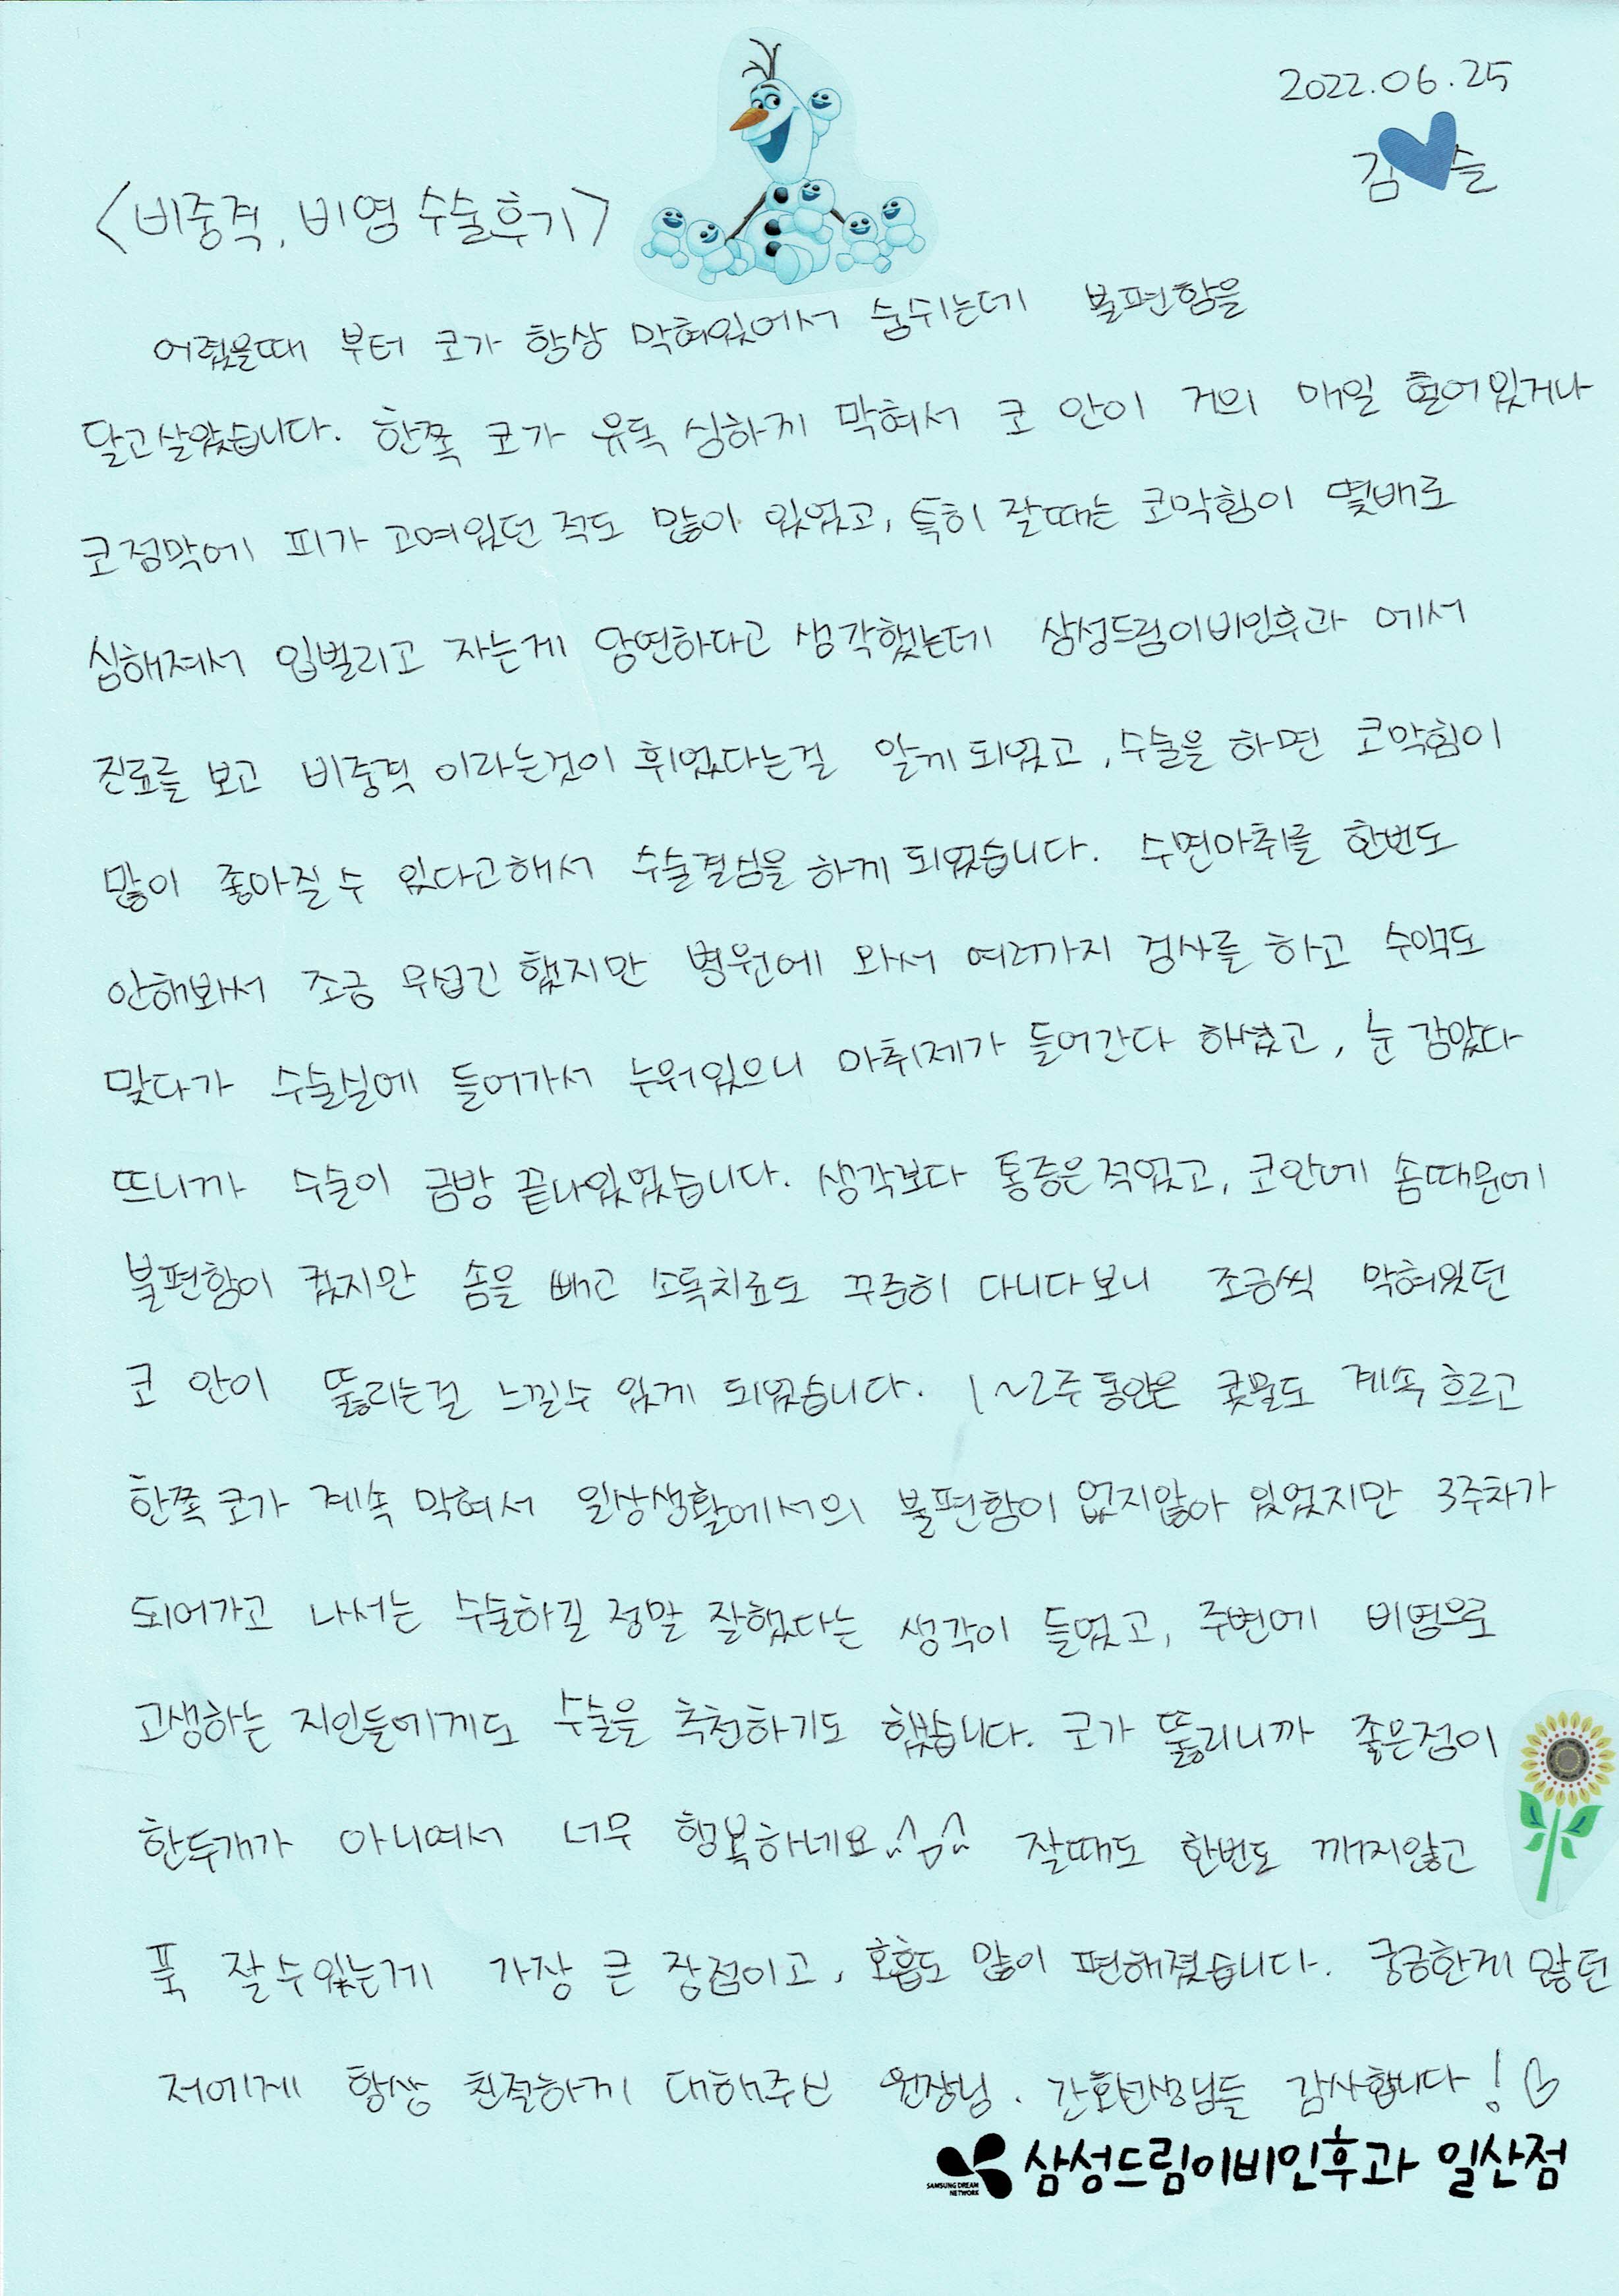 2022.06.25
김 슬
<비중격, 비염 수술후기>
어렸을때 부터 코가 항상 막혀있어서 숨쉬는데 불편함을
달고살았습니다. 한쪽 코가 유독 심하게 막혀서 코 안이 거의 매일 헐어있거나
코점막에 피가 고여있던 적도 많이 있었고, 특히 잘때는 코막힘이 몇배로
심해져서 입벌리고 자는게 당연하다고 생각했는데 삼성드림이비인후과 에서
진료를 보고 비중격 이라는것이 휘었다는걸 알게 되었고, 수술을 하면 코막힘이
많이 좋아질 수 있다고해서 수술결심을 하게 되었습니다. 수면마취를 한번도
안해봐서 조금 무섭긴 했지만 병원에 와서 여러가지 검사를 하고 수액도
맞다가 수술실에 들어가서 누워있으니 마취제가 들어간다 하셨고, 눈 감았다
뜨니까 수술이 금방 끝나있었습니다. 생각보다 통증은 적었고, 코안에 솜때문에
불편함이 컸지만 솜을 빼고 소독치료도 꾸준히 다니다보니 조금씩 막혀있던
코 안이 뚫리는걸 느낄수 있게 되었습니다. 1~2주 동안은 콧물도 계속 흐르고
한쪽 코가 계속 막혀서 일상생활에서의 불편함이 없지않아 있었지만 3주차가
되어가고 나서는 수술하길 정말 잘했다는 생각이 들었고, 주변에 비염으로
고생하는 지인들에게도 수술을 추천하기도 했습니다. 코가 뚫리니까 좋은점이
한두개가 아니여서 너무 행복하네요^_^ 잘때도 한번도 깨지않고
푹 잘 수있는게 가장 큰 장점이고, 호흡도 많이 편해졌습니다. 궁금한게 많던
저에게 항상 친절하게 대해주신 원장님. 간호선생님들 감사합니다! ♡
SAMSUNG DREAM NETWORK 삼성드림이비인후과 일산점